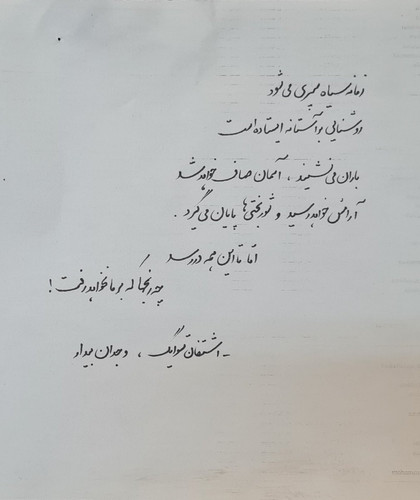 زمانه سیاه سپری می شود
روشنایی بر آستانه ایستاده است
باران می نشیند ، آسمان صاف خواهد شد
آرامش خواهد رسید و شوربختی ها پایان می گیرد .
اما تا این همه در رسد
چه رنجها که بر ما نخواهد رفت !
- اشتفان تسوایگ ، وجدان بیدار